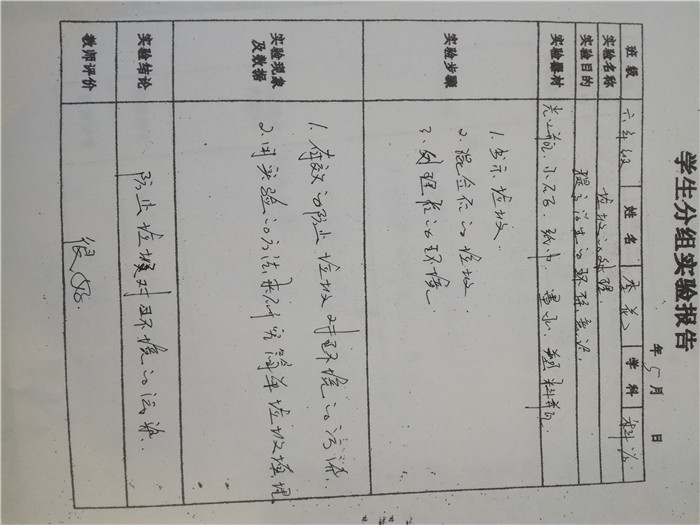 学生分组实验报告
年 5月 日
班级 六年级 姓名 李 学科 科学
实验名称 垃圾的处理
实验目的 提高学生的环保意识。
实验器材 小石子、纸巾、塑料瓶
实验步骤
1、出示垃圾。
2、混合后的垃圾。
3、处理后的环境。
实验现象及数据
1、有效的防止垃圾对环境的污染。
2、用实验的方法来研究简单垃圾填埋
实验结论 防止垃圾对环境的污染。
教师评价 很好。